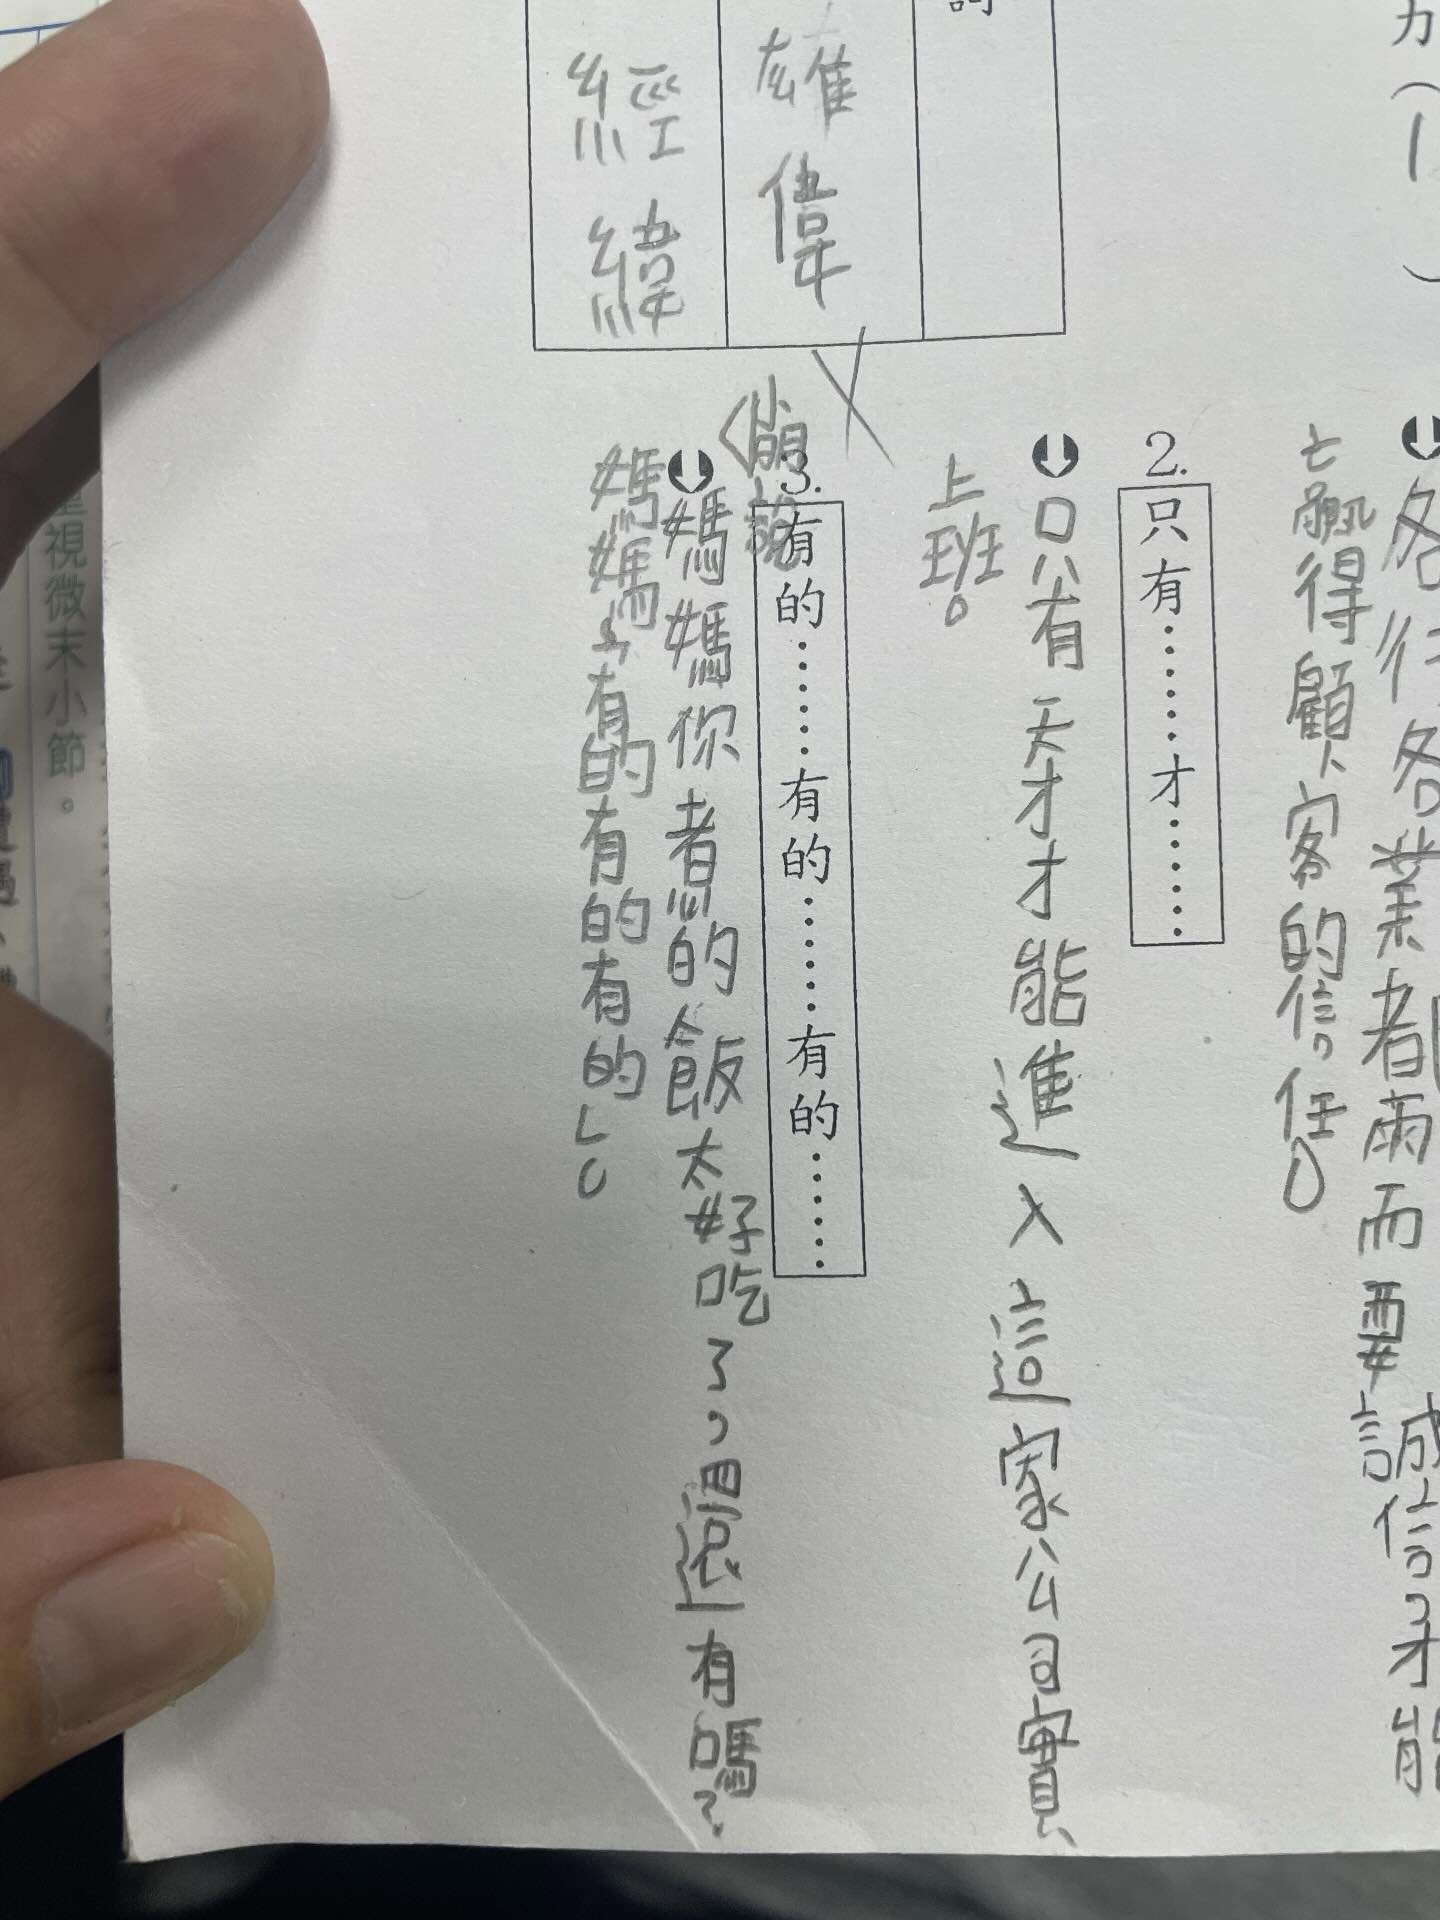 力(1 )
各行各業者都需而要誠信才能
贏得顧客的信任。
2.
只有……才……
只有天才才能進入這家公司實
上班。
雄偉
經緯
3.
有的……有的……有的……
媽媽你煮的飯太好吃了，還有嗎？
媽媽：有的有的有的」。
重視微末小節。